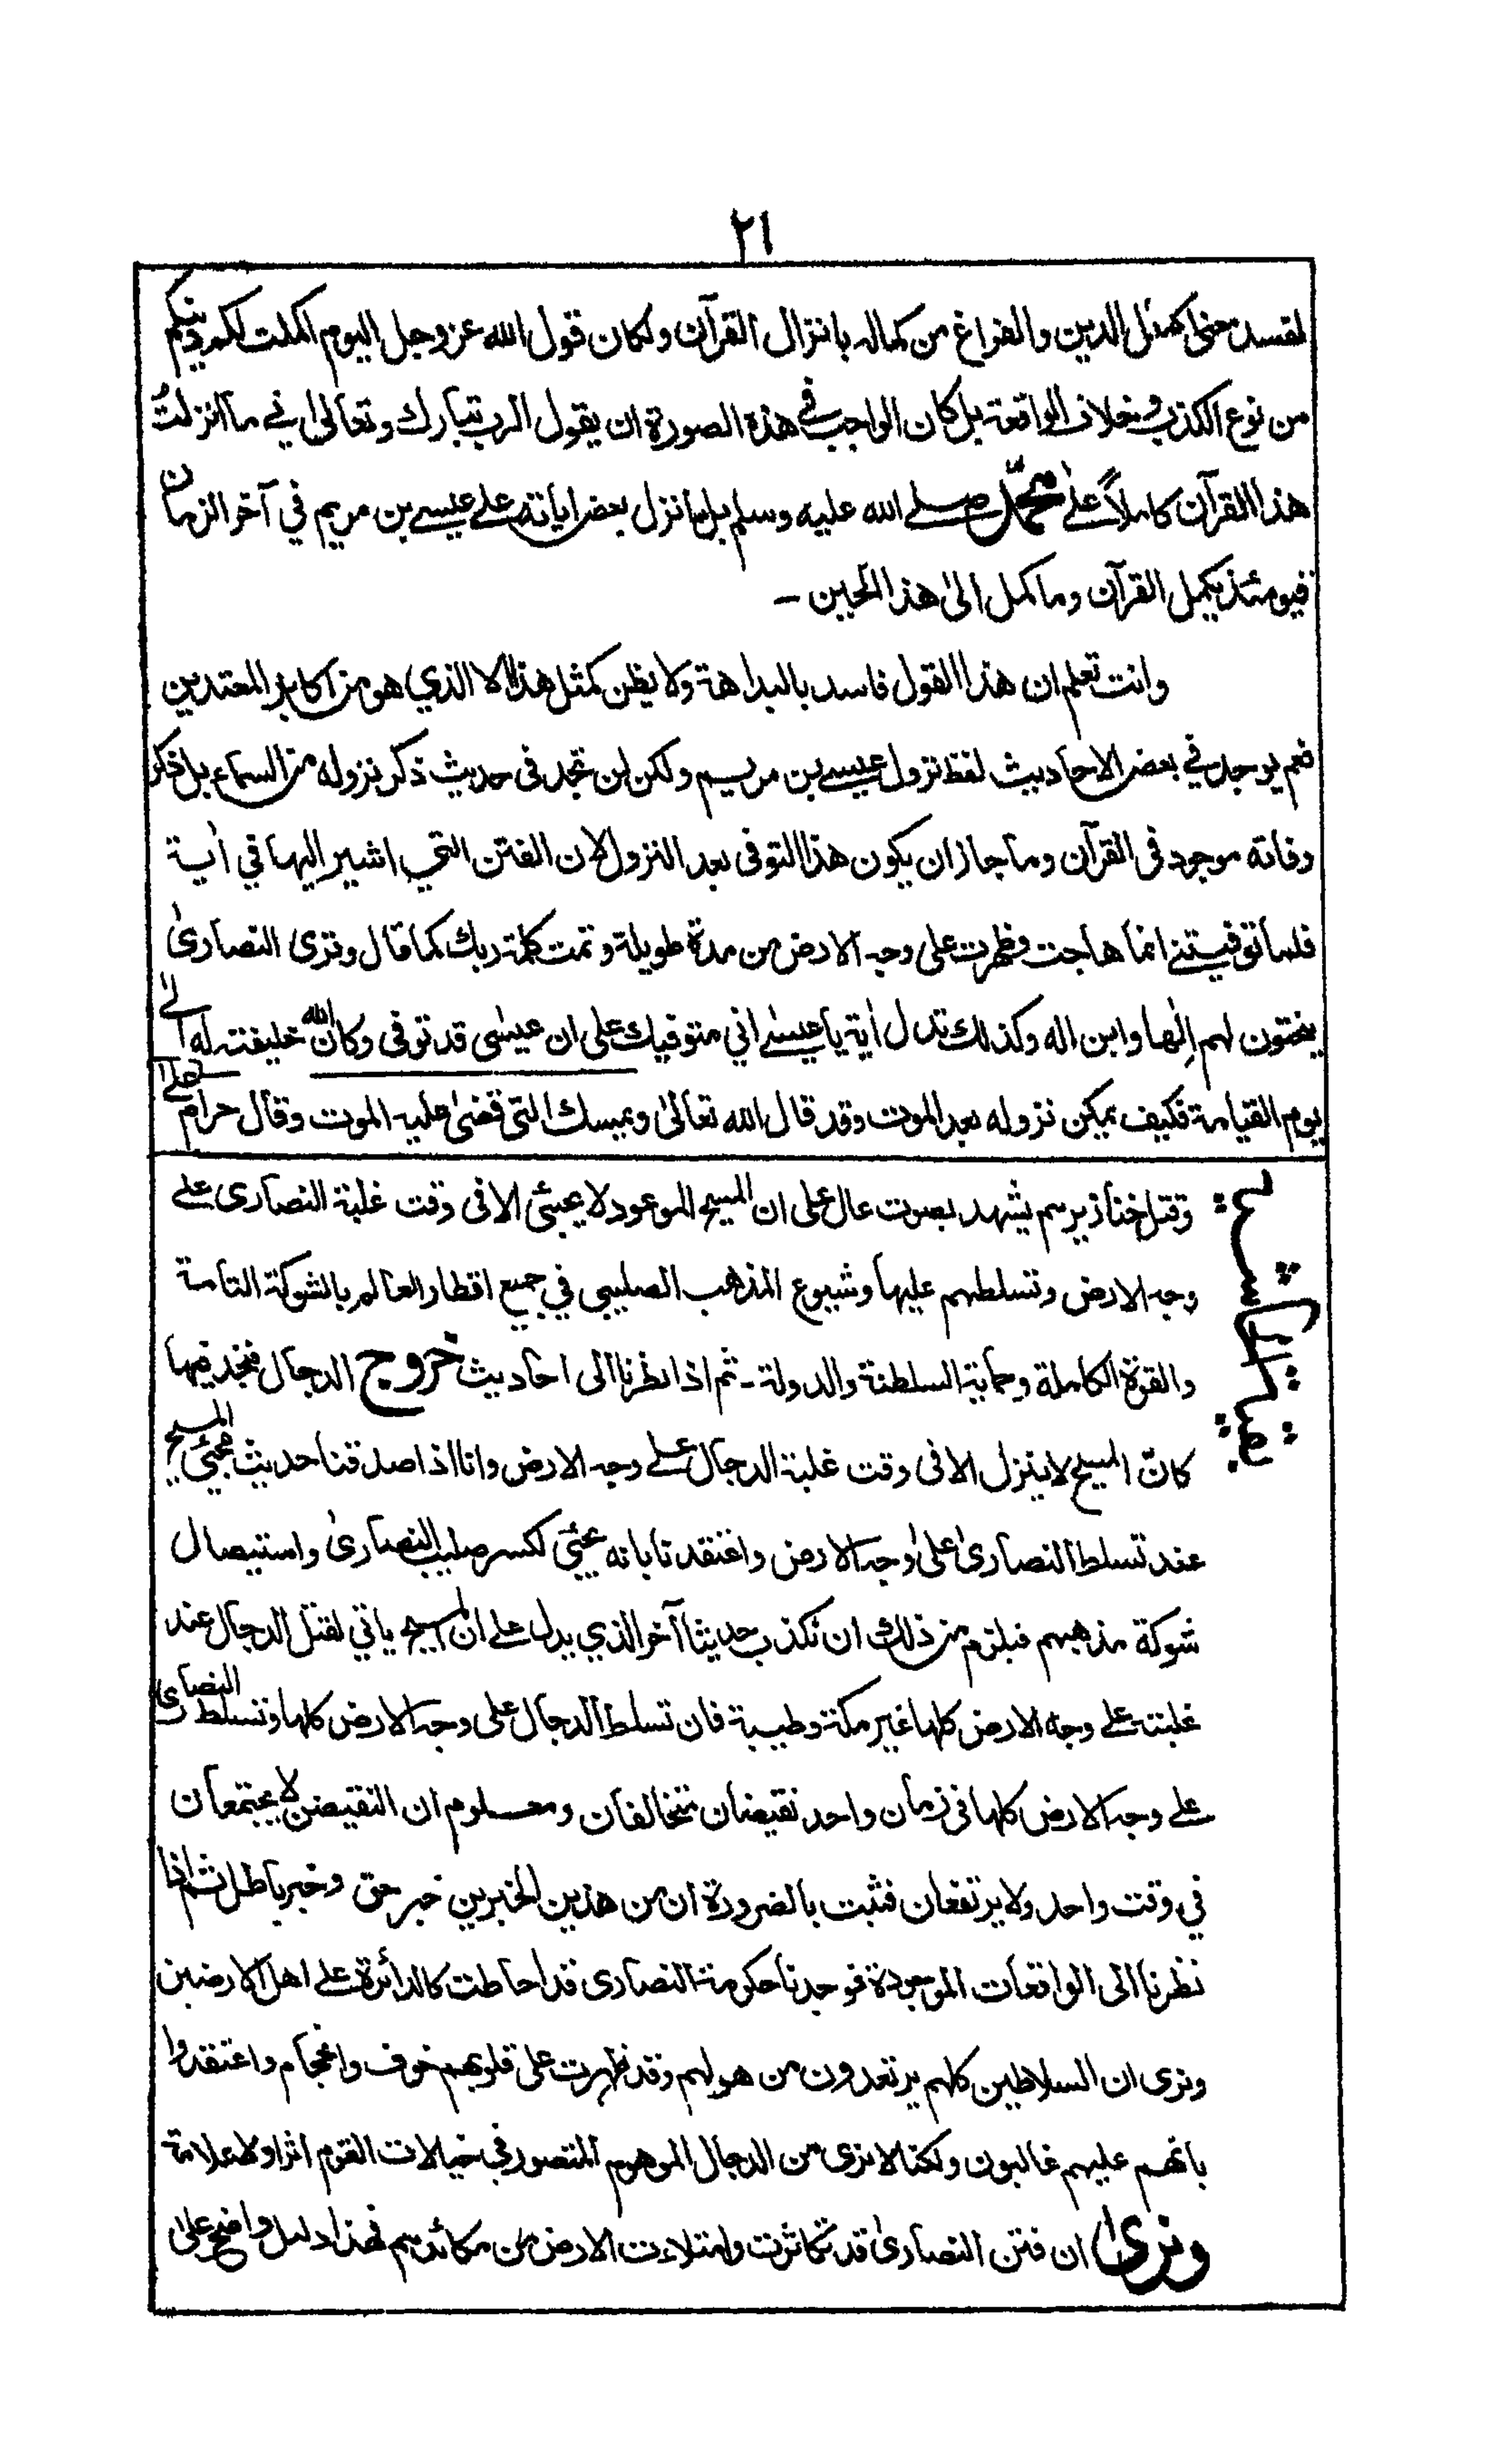 ٢١
لفسد معنى اكمال الدين والفراغ من كماله بانزال القرآن ولكان قول الله عز وجل اليوم اكملت لكم دينكم
من نوع الكذب وخلاف الواقعة بل كان الواجب في هذه الصورة ان يقول الرب تبارك وتعالى اني ما انزلتُ
هذا القرآن كاملاً على محمّد صلے الله عليه وسلم بل سانزل بعض اياته علے عيسے بن مريم في آخر الزمان
فيومئذ يكمل القرآن وما كمل الى هذا الحين -
وانت تعلم ان هذا القول فاسد بالبداهة ولا يظن كمثل هذا الا الذي هو من اكابر المعتدين
نعم يوجد في بعض الاحاديث لفظ نزول عيسے بن مريم ولكن لن تجد فى حديث ذكر نزوله من السماء بل ذكر
وفاته موجود فى القرآن وما جاز ان يكون هذا التوفى بعد النزول لان الفتن التي اشير اليها في اٰية
فلما توفيتنے انما هاجت وظهرت على وجه الارض من مدة طويلة وتمت كلمة ربك كما قال وترى النصارىٰ
ينحتون لهم اِلٰها وابن اله وكذلك تدل اٰية يا عيسٰے اني متوفيك على ان عيسٰى قد توفى وكان الله خليفته له الے
يوم القيامة فكيف يمكن نزوله بعد الموت وقد قال الله تعالىٰ ويمسك التى قضىٰ عليه الموت وقال حرام علے
بقية الحاشية
وقتل خنازيرهم يشهد بصوت عال على ان المسيح الموعود لا يجيئ الا فى وقت غلبة النصارى علے
وجه الارض وتسلطهم عليها وشيوع المذهب الصليبي في جميع اقطار العالم بالشوكة التامة
والقوة الكاملة وحماية السلطنة والدولة - ثم اذا نظرنا الى احاديث خروج الدجال فنجد فيها
كانّ المسيح لا ينزل الا فى وقت غلبة الدجال علے وجه الارض وانا اذا صدقنا حديث مجيئ المسيح
عند تسلط النصارىٰ علىٰ وجه الارض واعتقدنا بانه يجيئ لكسر صليب النصارىٰ واستيصال
شوكة مذهبهم فيلزم من ذلك ان نكذب حديثا آخر الذي يدل علے ان المسيح ياتي لقتل الدجال عند
غلبته علے وجه الارض كلها غير مكة وطيبة فان تسلط الدجال على وجه الارض كلها وتسلط النصارى
علے وجه الارض كلها فى زمان واحد نقيضان متخالفان ومعلوم ان النقيضين لا يجتمعان
في وقت واحد ولا يرتفعان فثبت بالضرورة ان من هذين الخبرين خبر حق وخبر باطل ثم اذا
نظرنا الى الواقعات الموجودة فوجدنا حكومة النصارى قد احاطت كالدائرة علے اهل الارضين
ونرى ان السلاطين كلهم يرتعدون من هولهم وقد ظهرت على قلوبهم خوف وافحام واعتقدوا
بانهم عليهم غالبون ولكنا لا نرى من الدجال الموهوم المتصور في خيالات القوم اثرا ولا علامة
ونرىٰ ان فتن النصارىٰ قد تكاثرت وامتلاءت الارض من مكائدهم فهذا دليل واضح علىٰ